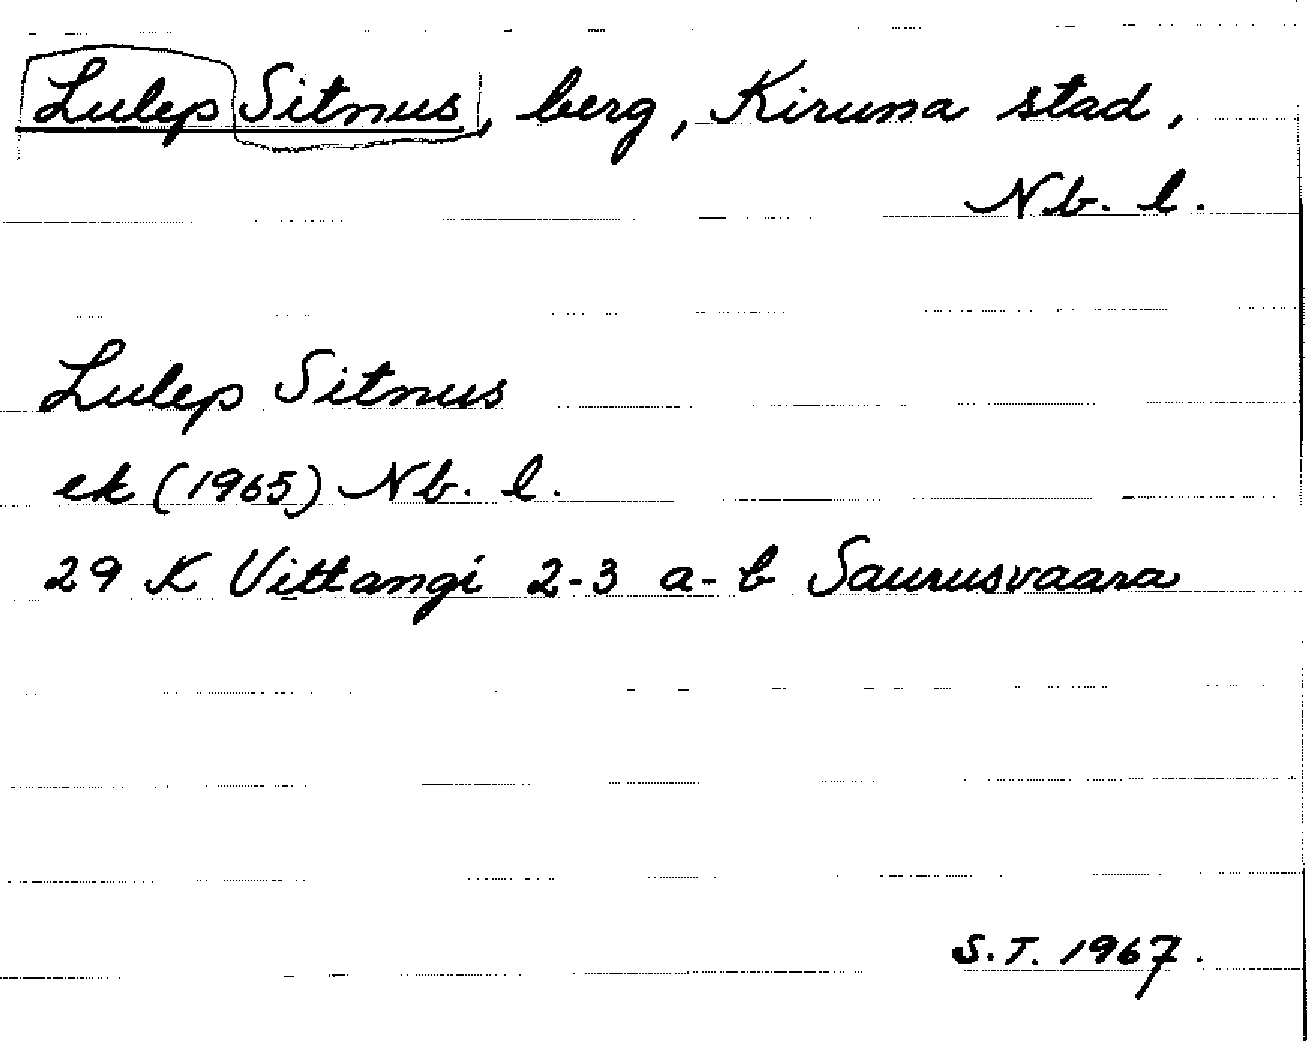 Lulep Sitnus, berg, Kiruna stad,
Nb. l.
Lulep Sitnus
ek (1965) Nb. l.
29 K Vittangi 2-3 a-b Saurusvaara
S.T. 1967.